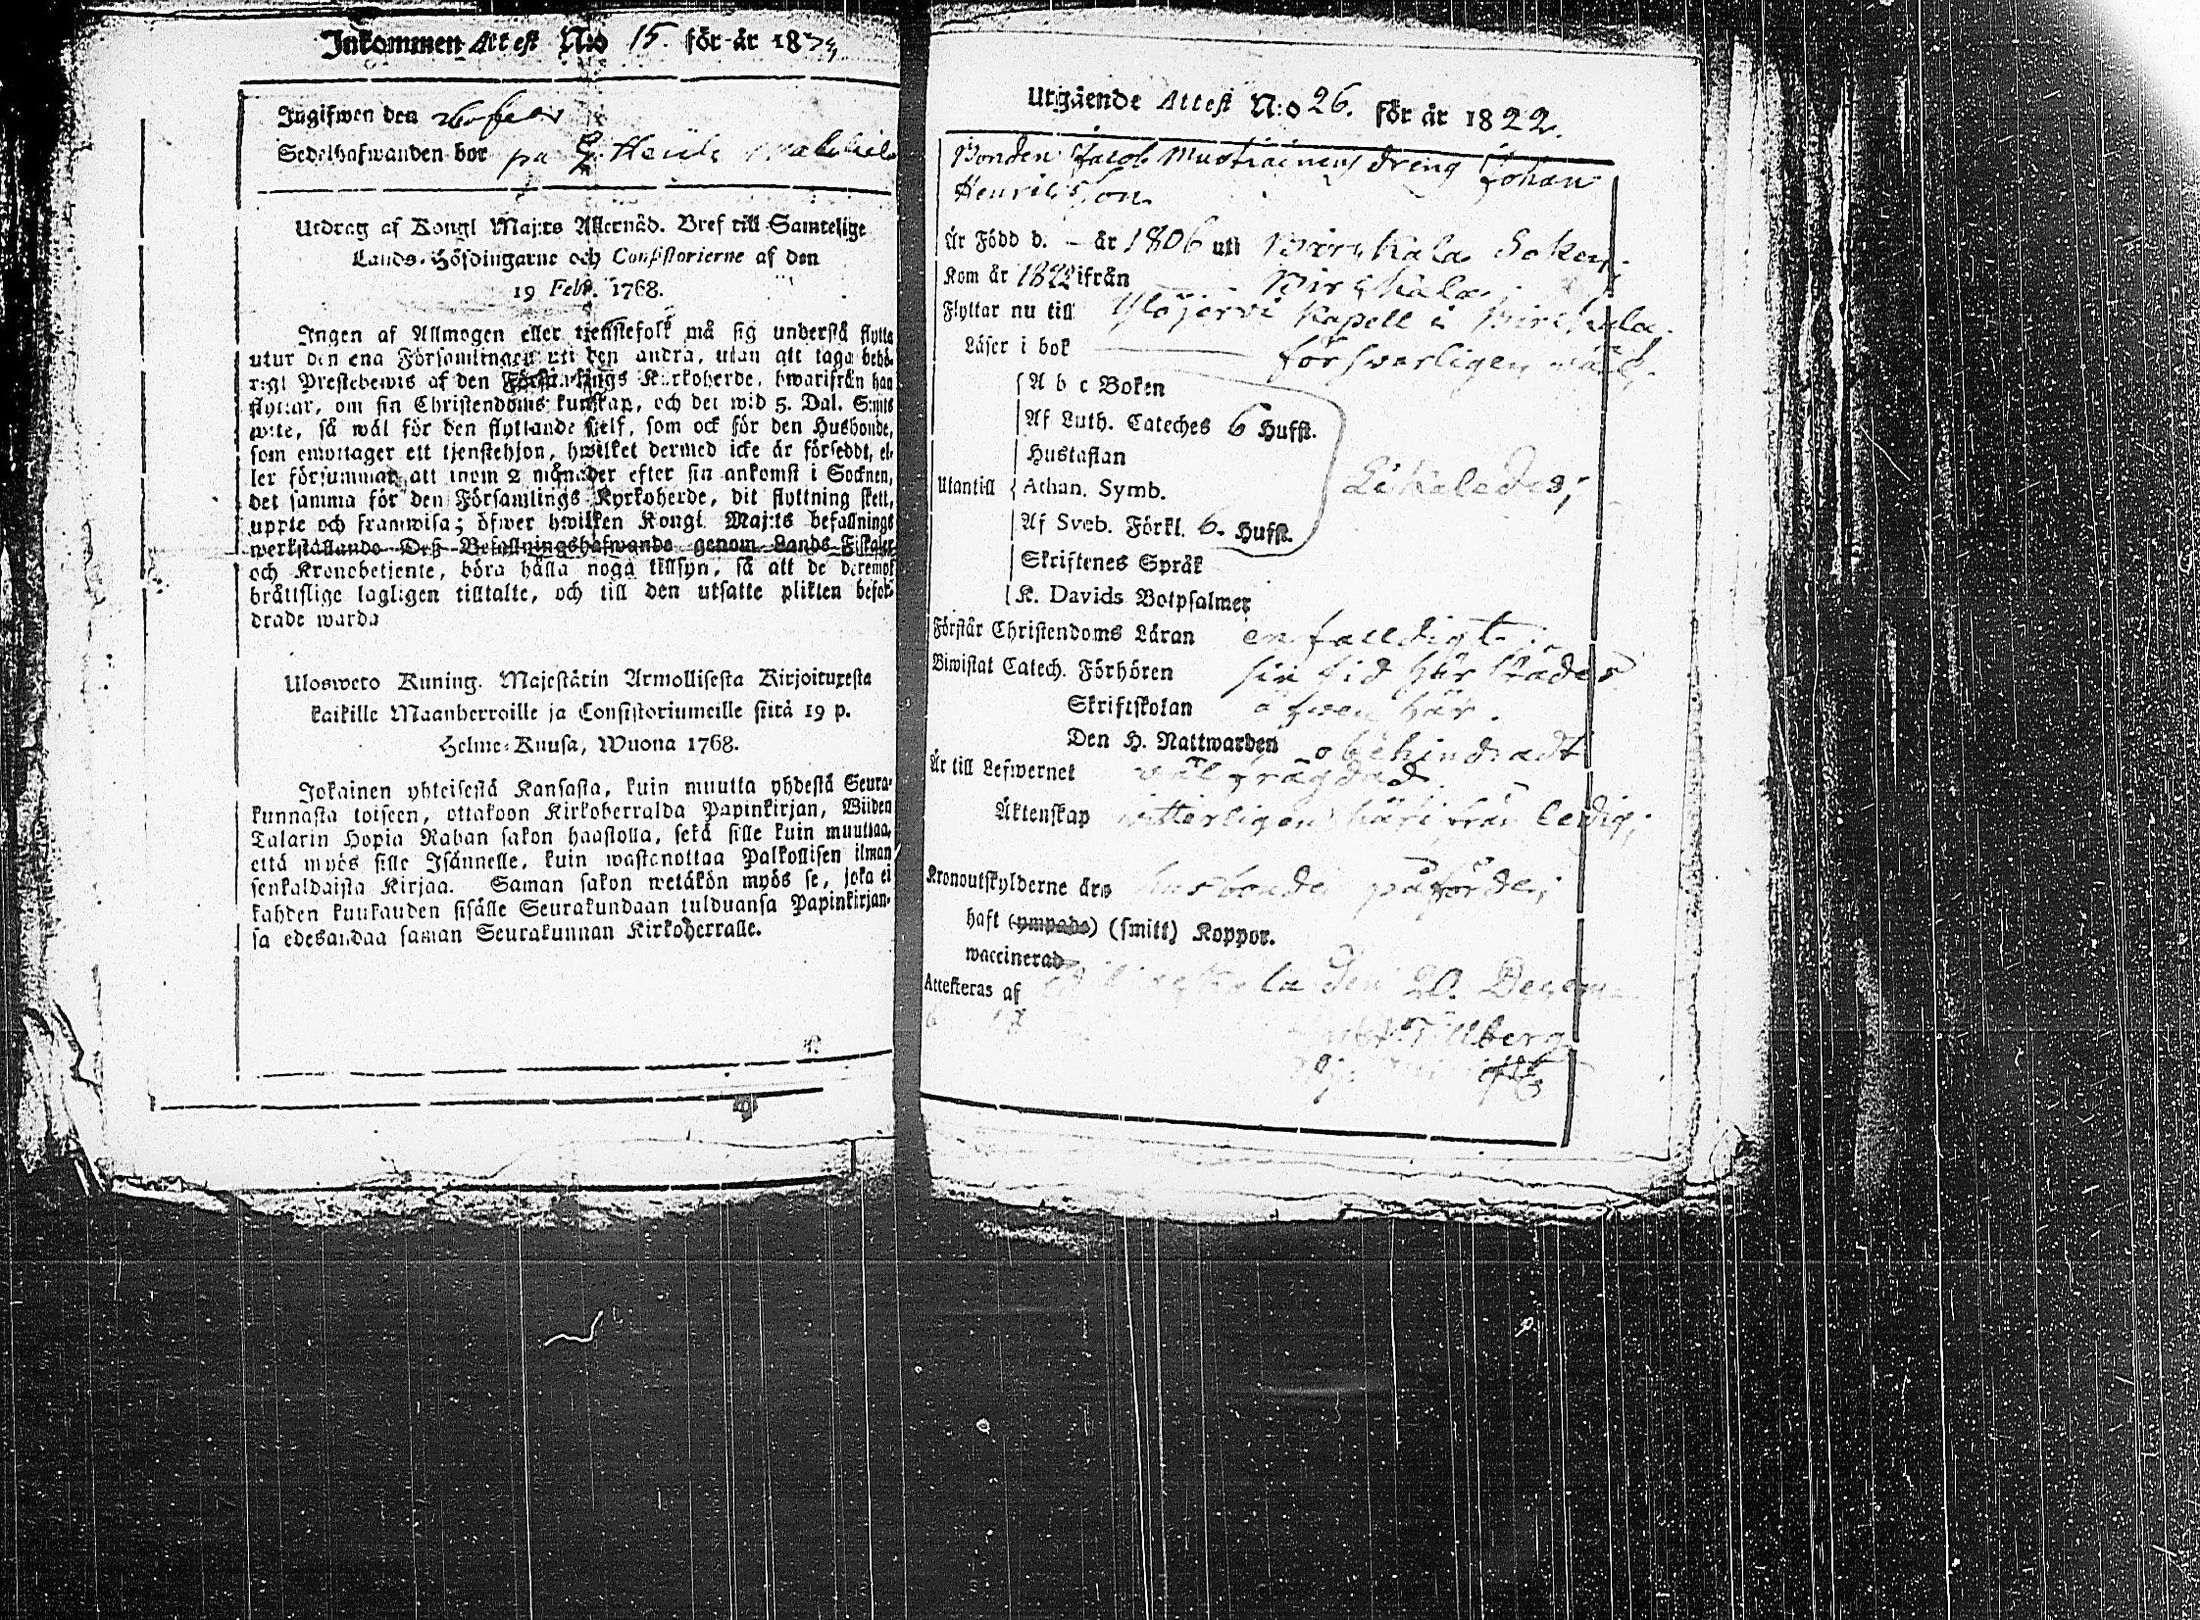 Inkommen Attest N:o 15. för år 18
Ingifwen den
Sedelhafwanden bor på
Utdrag af Kongl Maj:ts Allernåd. Bref till Samtelige
Lands-Höfdingarne och Consistorierne af den
19 Febr. 1768.
Ingen af Allmogen eller tjenstefolk må sig understå flytta
utur den ena Församlingen uti den andra, utan att taga behö-
rigt Prestebewis af den Församlings Kyrkoherde, hwarifrån han
flyttar, om sin Christendoms kunskap, och det wid 5. Dal. S:mts
wite, så wäl för den flyttande sjelf, som ock för den Husbonde,
som emottager ett tjenstehjon, hwilket dermed icke är försedt, el-
ler försummar att inom 2 månader efter sin ankomst i Socknen,
det samma för den Församlings Kyrkoherde, dit flyttning skett,
uppte och framwisa; öfwer hwilken Kongl. Maj:ts befallnings
werkställande Deß Befallningshafwande genom Lands-Fiskaler
och Kronobetjente, böra hålla noga tillsyn, så att de deremot
bråttslige lagligen tilltalte, och till den utsatte plikten befor-
drade warda
Ulosweto Kuning. Majestätin Armollisesta Kirjoituxesta
kaikille Maanherroille ja Consistoriumeille siitä 19 p.
Helme-Kuusa, Wuona 1768.
Jokainen yhteisestä Kansasta, kuin muutta yhdestä Seura-
kunnasta toiseen, ottakoon Kirkoherralda Papinkirjan, Wiiden
Talarin Hopia Rahan sakon haastolla, sekä sille kuin muuttaa,
että myös sille Isännelle, kuin wastanottaa Palkollisen ilman
senkaldaista Kirjaa. Saman sakon wetäkön myös se, joka ei
kahden kuukauden sisälle Seurakundaan tulduansa Papinkirjan-
sa edesandaa saman Seurakunnan Kirkoherralle.
Utgående Attest N:o 26. för år 1822.
Bonden Jacob Mustiainens dreng Johan
Henricsson
Är Född d. – år 1806 uti Birckala Soken;
Kom år 1822 ifrån Birckala;
Flyttar nu till Ylöjervi Kapell i Birckala;
Läser i bok försvarligen wäl;
A b c Boken
Af Luth. Cateches 6 Hufst.
Hustaflan
Utantill Athan. Symb. Likaledes;
Af Sveb. Förkl. 6. Hufst.
Skriftenes Språk
K. Davids Botpsalmer
Förstår Christendoms Läran enfalldigt;
Biwistat Catech. Förhören sin tid här
Skriftskolan äfwen här.
Den H. Nattwarden obehindradt
Är till Lefwernet wäl frägdad
Äktenskap witterligen härifrån ledig;
Kronoutskylderne äro husbonden påförde;
haft (ympade) (smitt) Koppor.
waccinerad
Attesteras af den 20. Decem
Tillberg